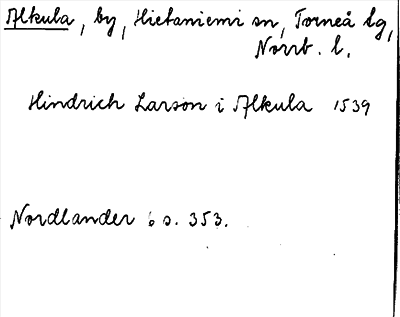 Alkula, by, Hietaniemi sn, Torneå lg,
Norrb. l.
Hindrich Larson i Alkula 1539
Nordlander 6 s. 353.